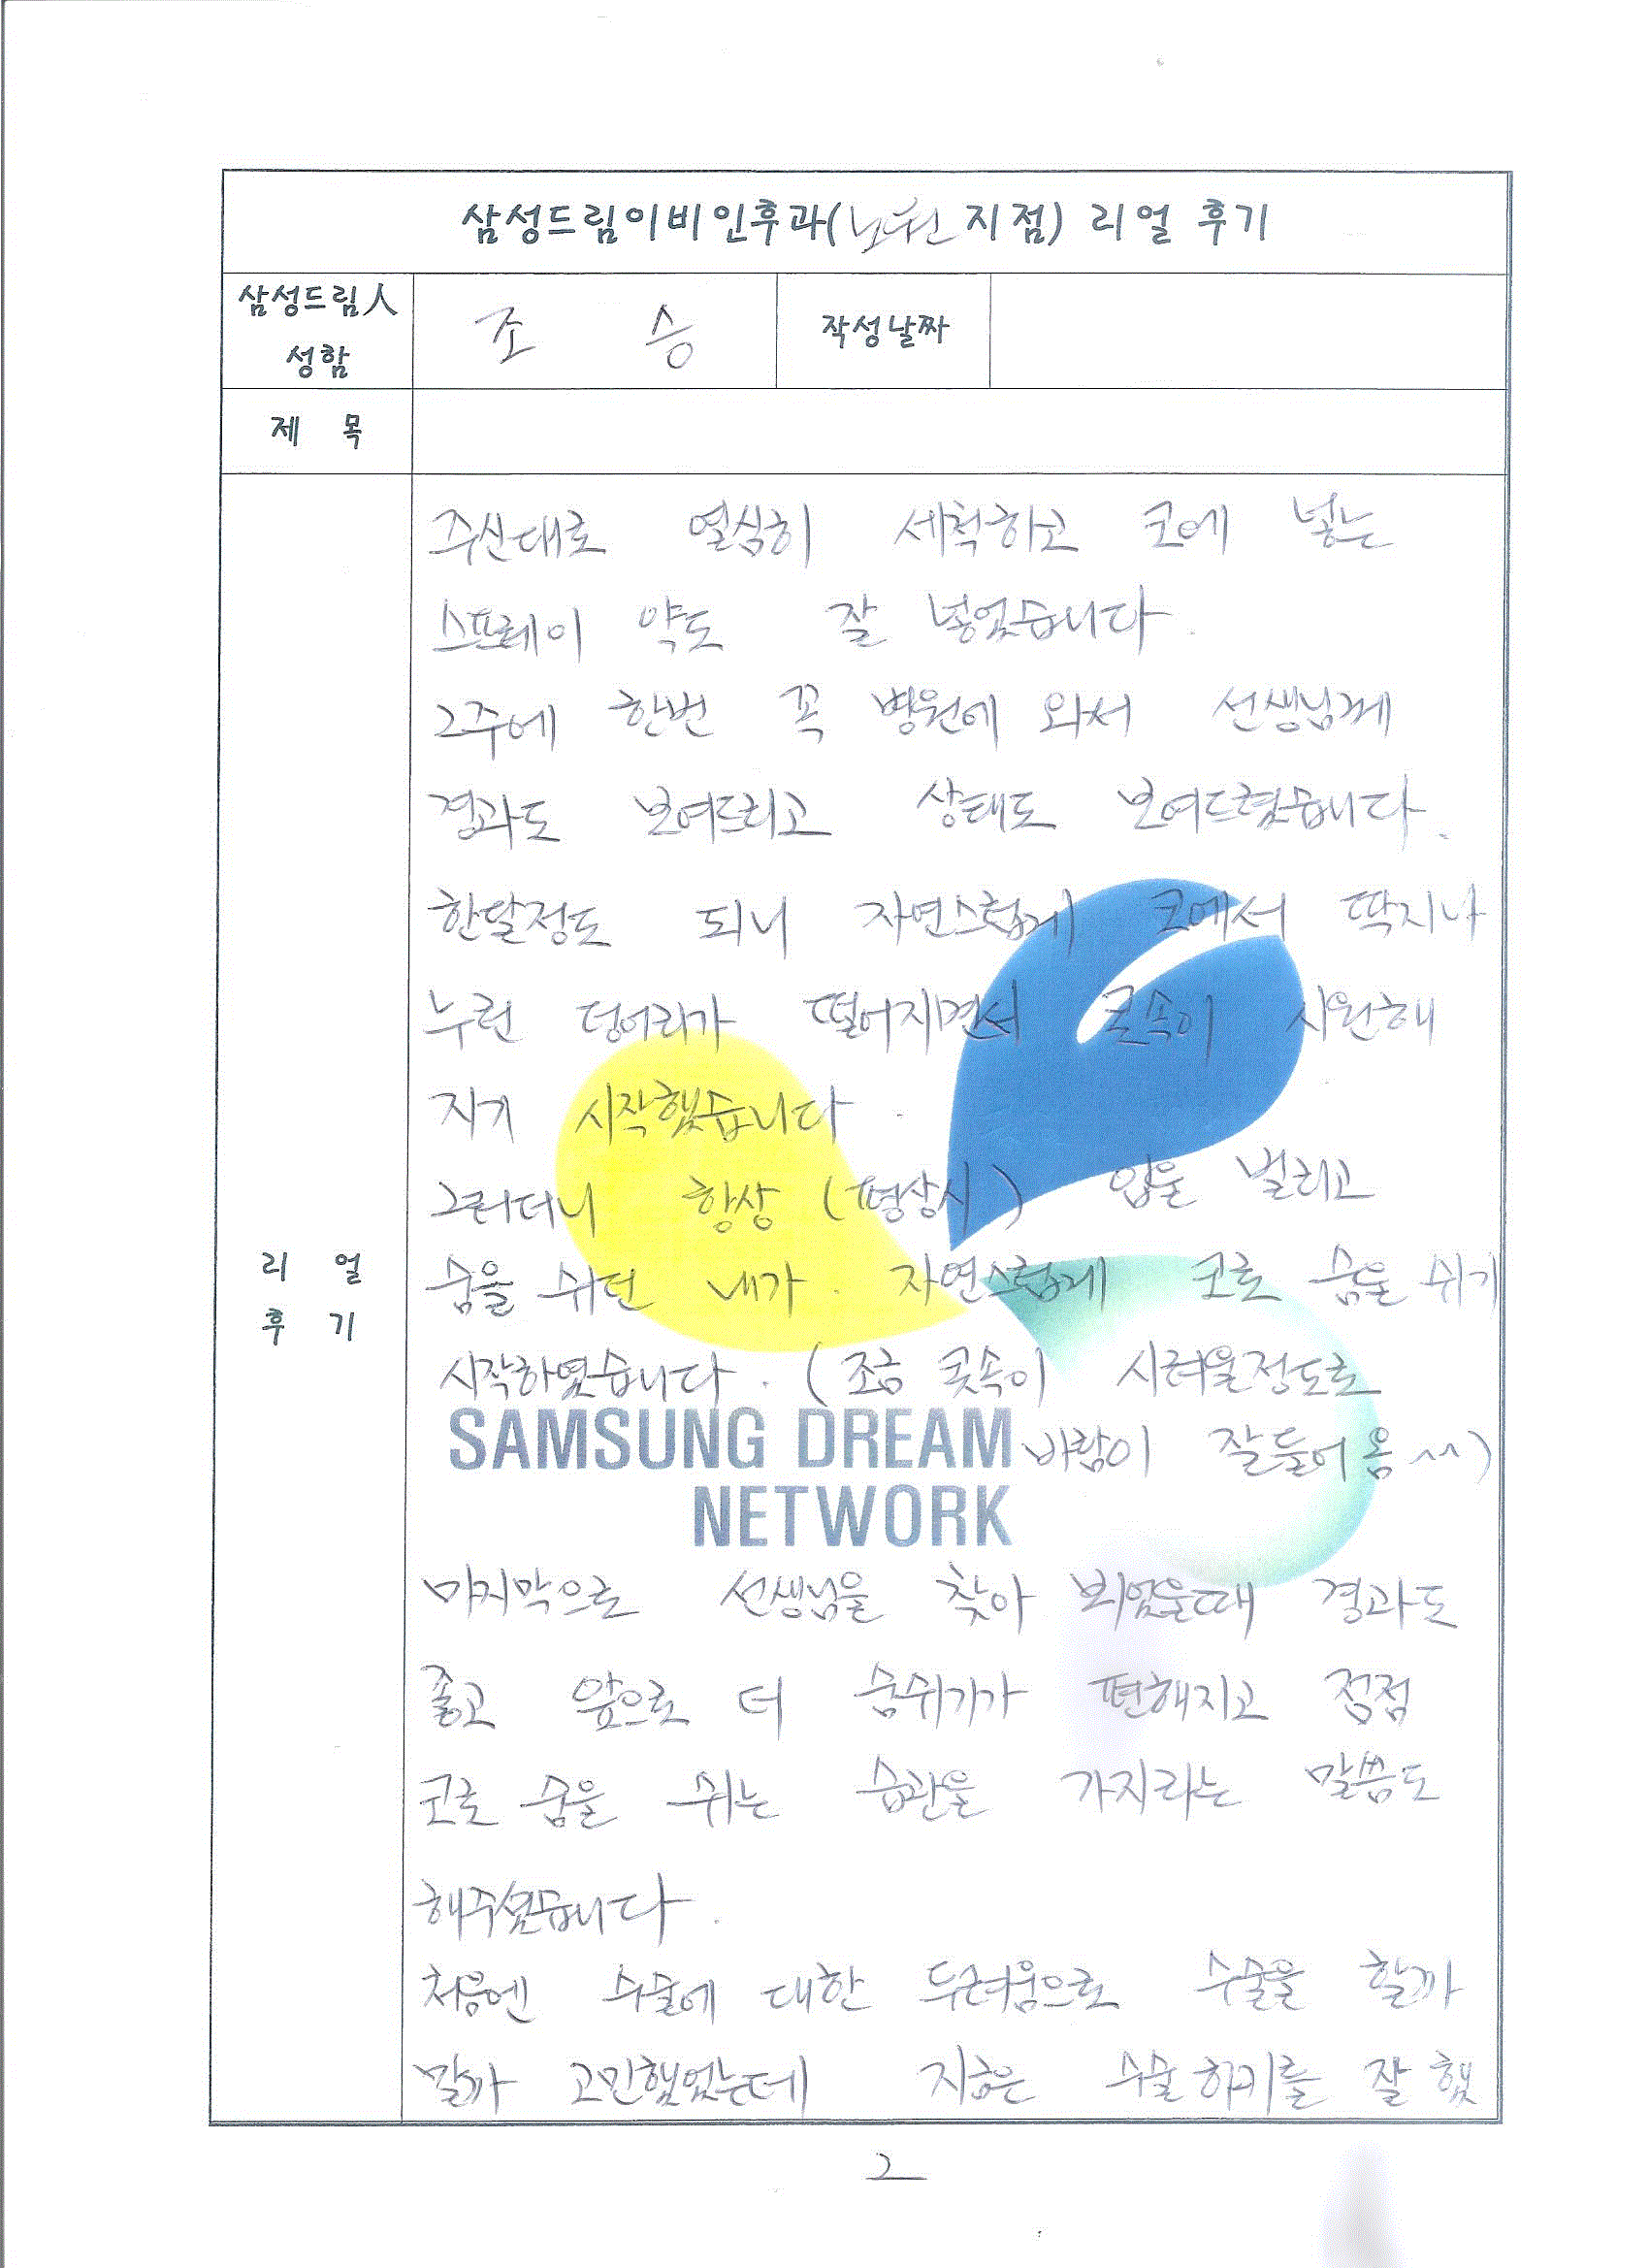 삼성드림이비인후과(노원 지점) 리얼 후기
삼성드림人 성함
조 승
작성날짜
제 목
리 얼 후 기
주신대로 열심히 세척하고 코에 넣는
스프레이 약도 잘 넣었습니다.
2주에 한번 꼭 병원에 와서 선생님께
경과도 보여드리고 상태도 보여드렸습니다.
한달정도 되니 자연스럽게 코에서 딱지나
누런 덩어리가 떨어지면서 콧속이 시원해
지기 시작했습니다.
그러더니 항상 (평상시) 입을 벌리고
숨을 쉬던 내가. 자연스럽게 코로 숨을 쉬기
시작하였습니다. (조금 콧속이 시려울정도로
바람이 잘들어옴 ^^)
SAMSUNG DREAM
NETWORK
마지막으로 선생님을 찾아 뵈었을때 경과도
좋고 앞으로 더 숨쉬기가 편해지고 점점
코로 숨을 쉬는 습관을 가지라는 말씀도
해주셨습니다.
처음엔 수술에 대한 두려움으로 수술을 할까
말까 고민했었는데 지금은 수술하기를 잘 했
2